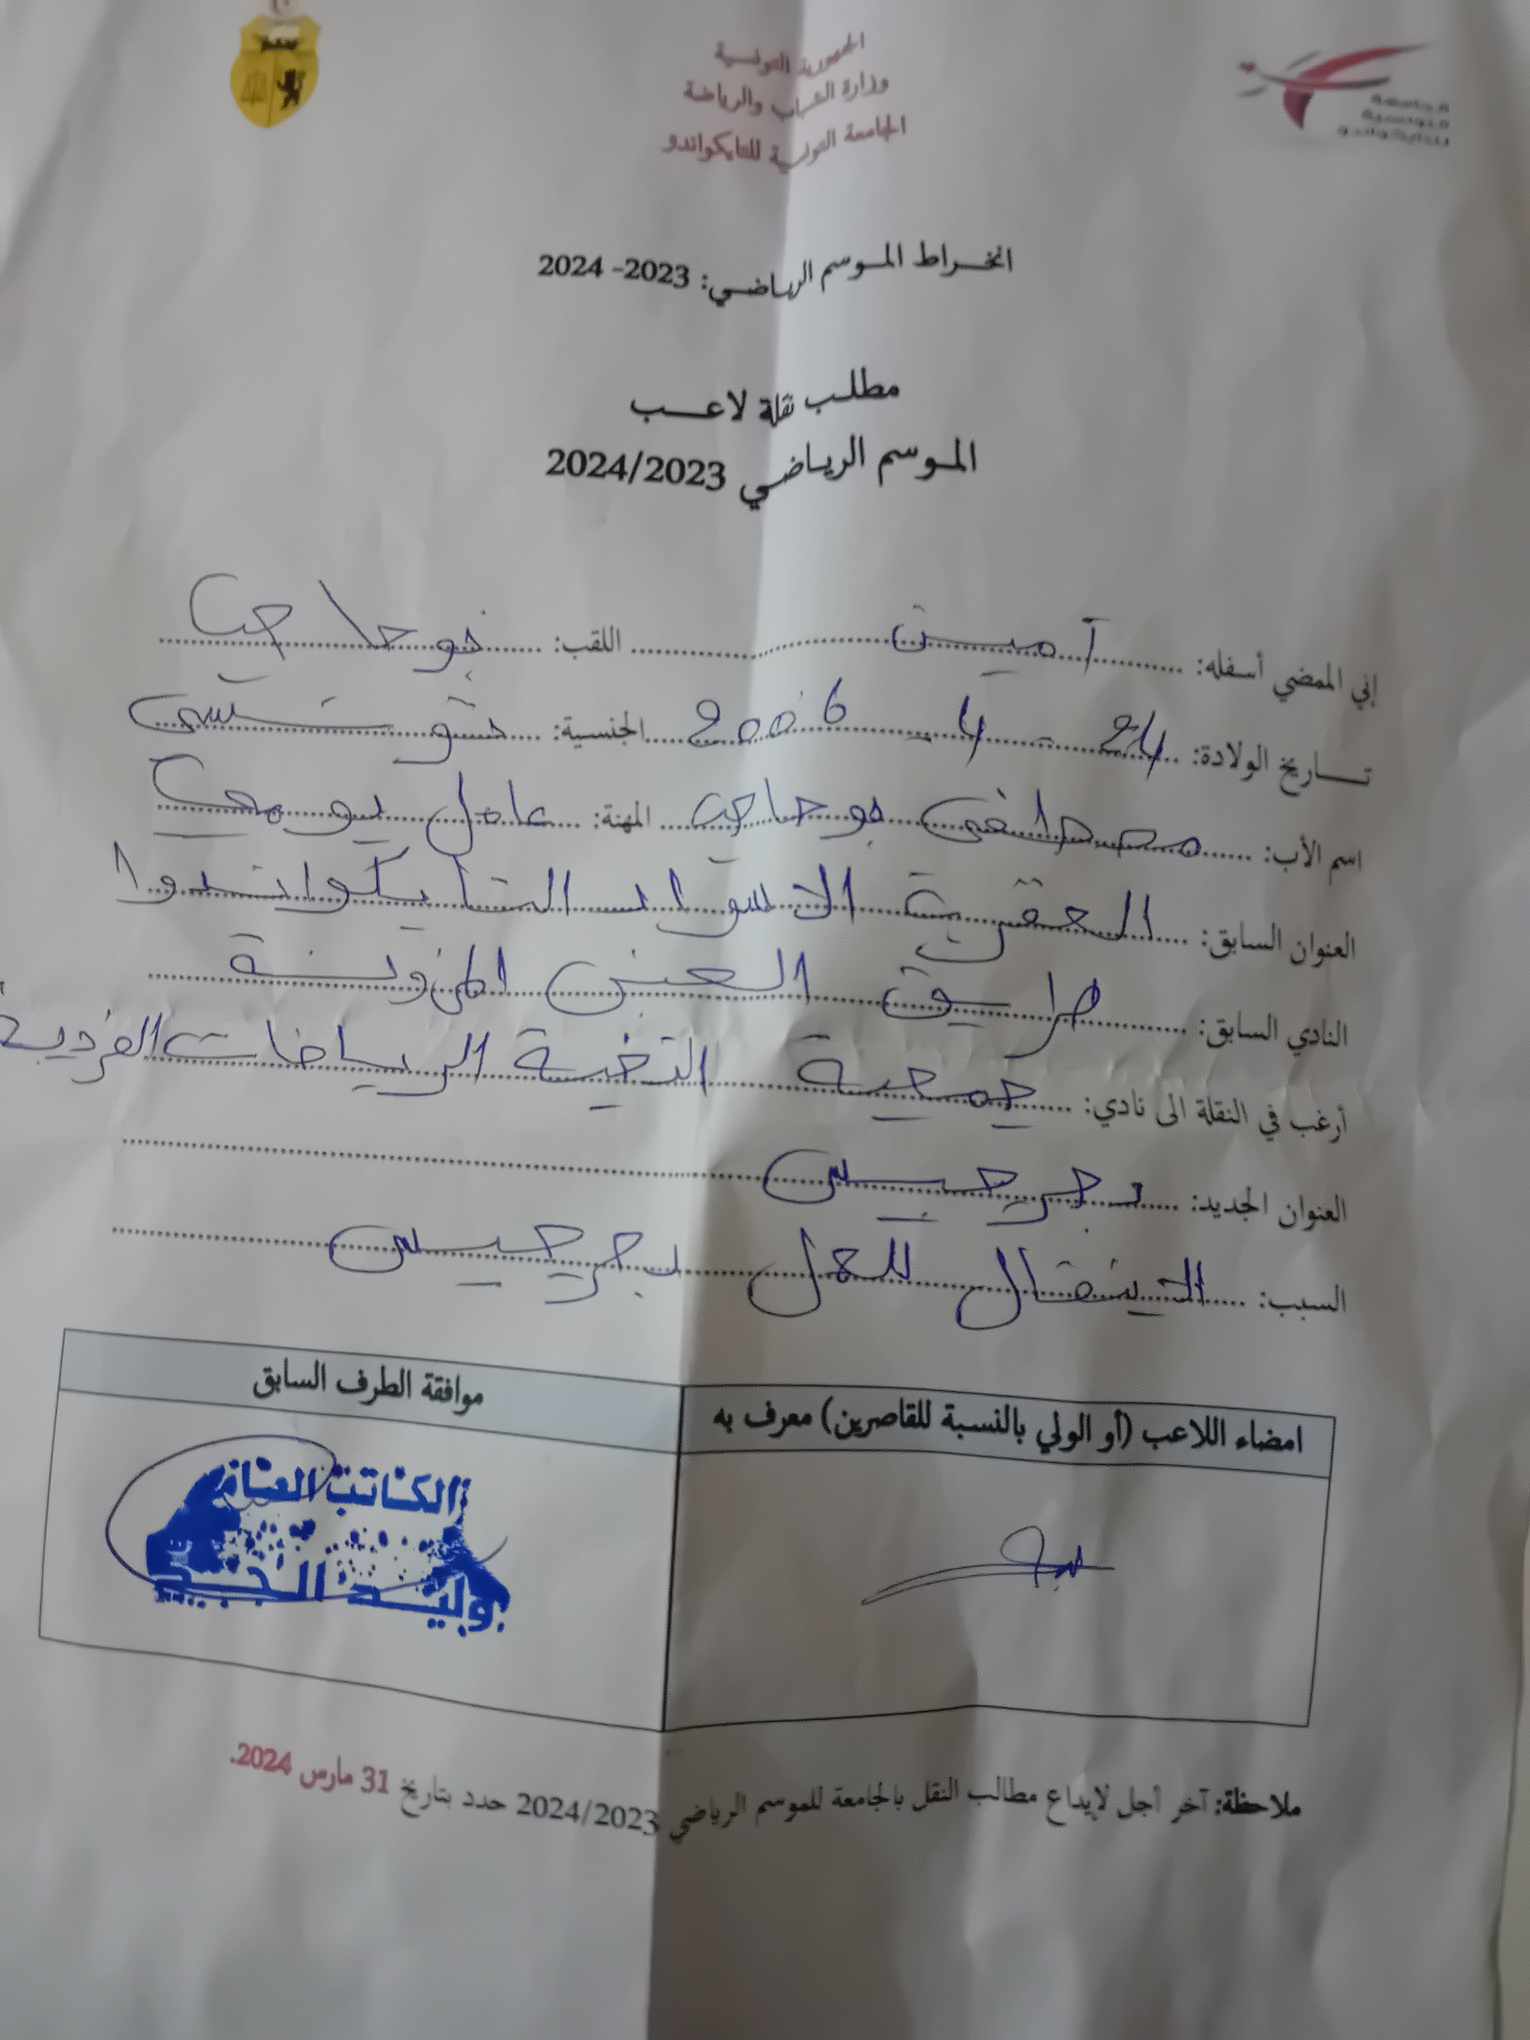 الجمهورية التونسية
وزارة الشباب والرياضة
الجامعة التونسية للتايكواندو
الجامعة
التونسية
للتايكواندو
انخراط الموسم الرياضي: 2023- 2024
مطلب نقلة لاعب
الموسم الرياضي 2024/2023
إني الممضي أسفله: آمين اللقب: بوحاجب
تاريخ الولادة: 24 - 4 - 2006 الجنسية: تونسي
اسم الأب: مصطفى بوحاجب المهنة: عامل يومي
العنوان السابق: التايكواندوا
النادي السابق: طريق العين
أرغب في النقلة الى نادي: جمعية الرياضات الفردية
العنوان الجديد: بجرجيس
السبب: للعمل بجرجيس
امضاء اللاعب (أو الولي بالنسبة للقاصرين) معرف به
موافقة الطرف السابق
الكاتب العام
وليد
ملاحظة: آخر أجل لإيداع مطالب النقل بالجامعة للموسم الرياضي 2024/2023 حدد بتاريخ 31 مارس 2024.